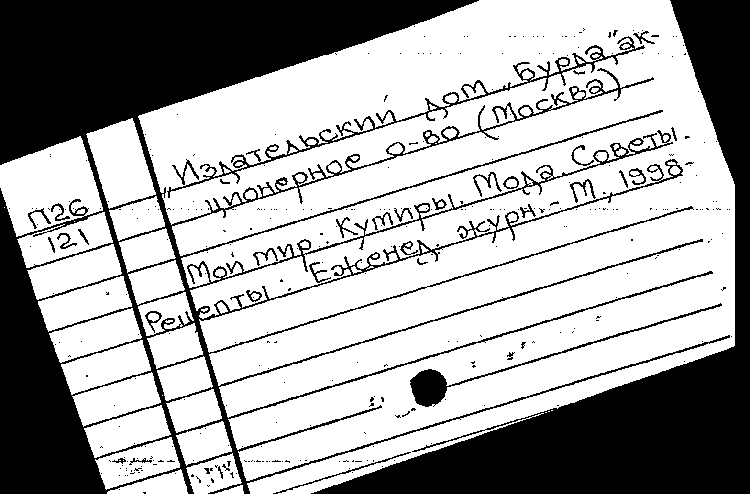 П26
121
„Издательский дом „Бурда", ак-
ционерное о-во (Москва)
Мой мир: Кумиры. Мода. Советы.
Рецепты: Еженед. журн. - М., 1998-